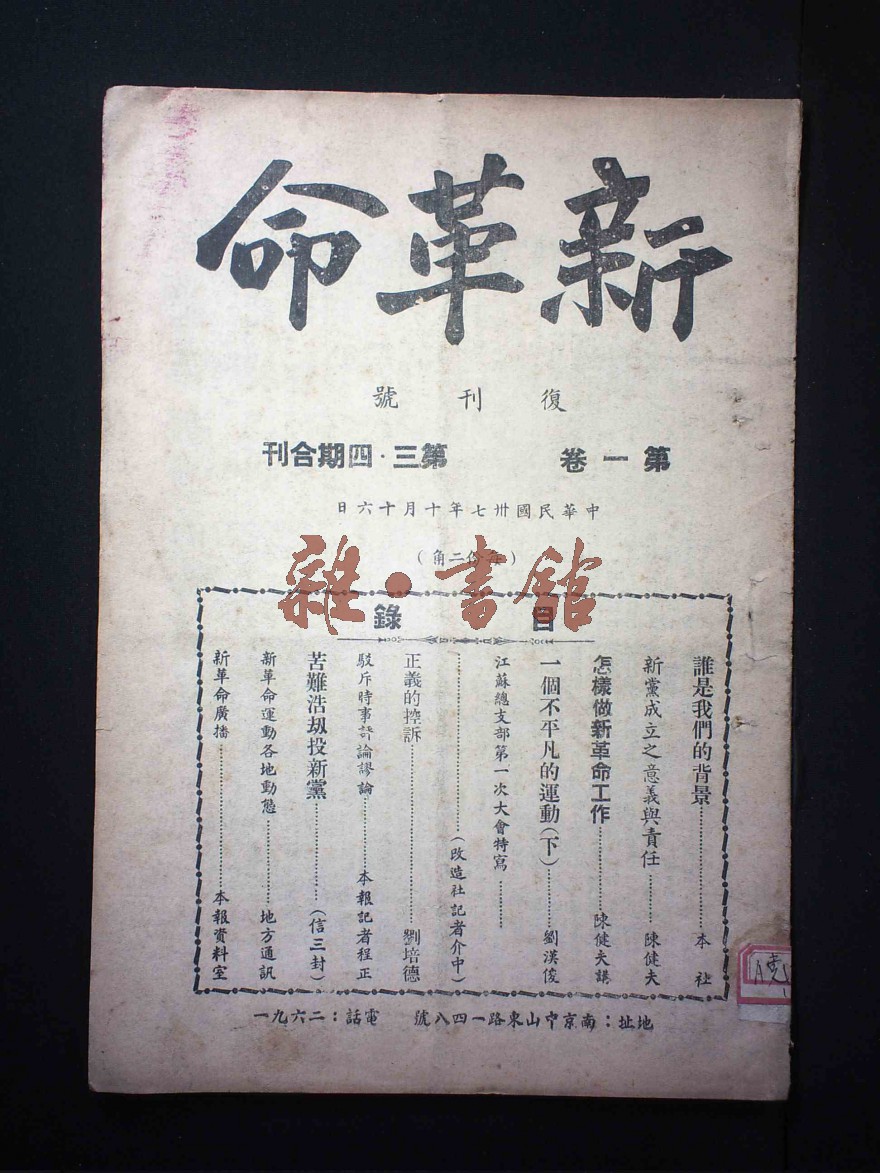 新革命
復刊號
第一卷 第三·四期合刊
中華民國卅七年十月十六日
(每份二角)
雜·書館
目錄
誰是我們的背景………本社
新黨成立之意義與責任………陳健夫
怎樣做新革命工作………陳健夫講
一個不平凡的運動(下)………劉漢俊
江蘇總支部第一次大會特寫………
………(改造社記者介中)
正義的控訴………劉培德
駁斥時事評論謬論………本報記者程正
苦難浩劫投新黨………(信三封)
新革命運動各地動態………地方通訊
新革命廣播………本報資料室
地址:南京中山東路一四八號 電話:二六九一